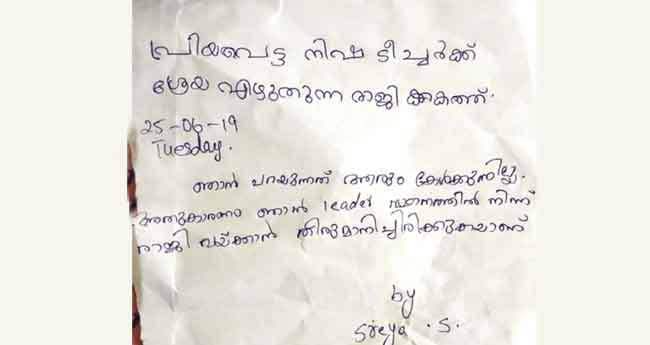 പ്രിയപെട്ട നിഷ ടീച്ചർക്ക്
ശ്രേയ എഴുതുന്ന രാജി ക്കത്ത്.
25-06-19
Tuesday.
ഞാൻ പറയുന്നത് ആരും കേൾക്കുന്നില്ല.
അതുകാരണം ഞാൻ leader സ്ഥാനത്തിൽ നിന്ന്
രാജി വയ്ക്കാൻ തീരുമാനിച്ചിരിക്കുകയാണ്
by
Sreya . S.